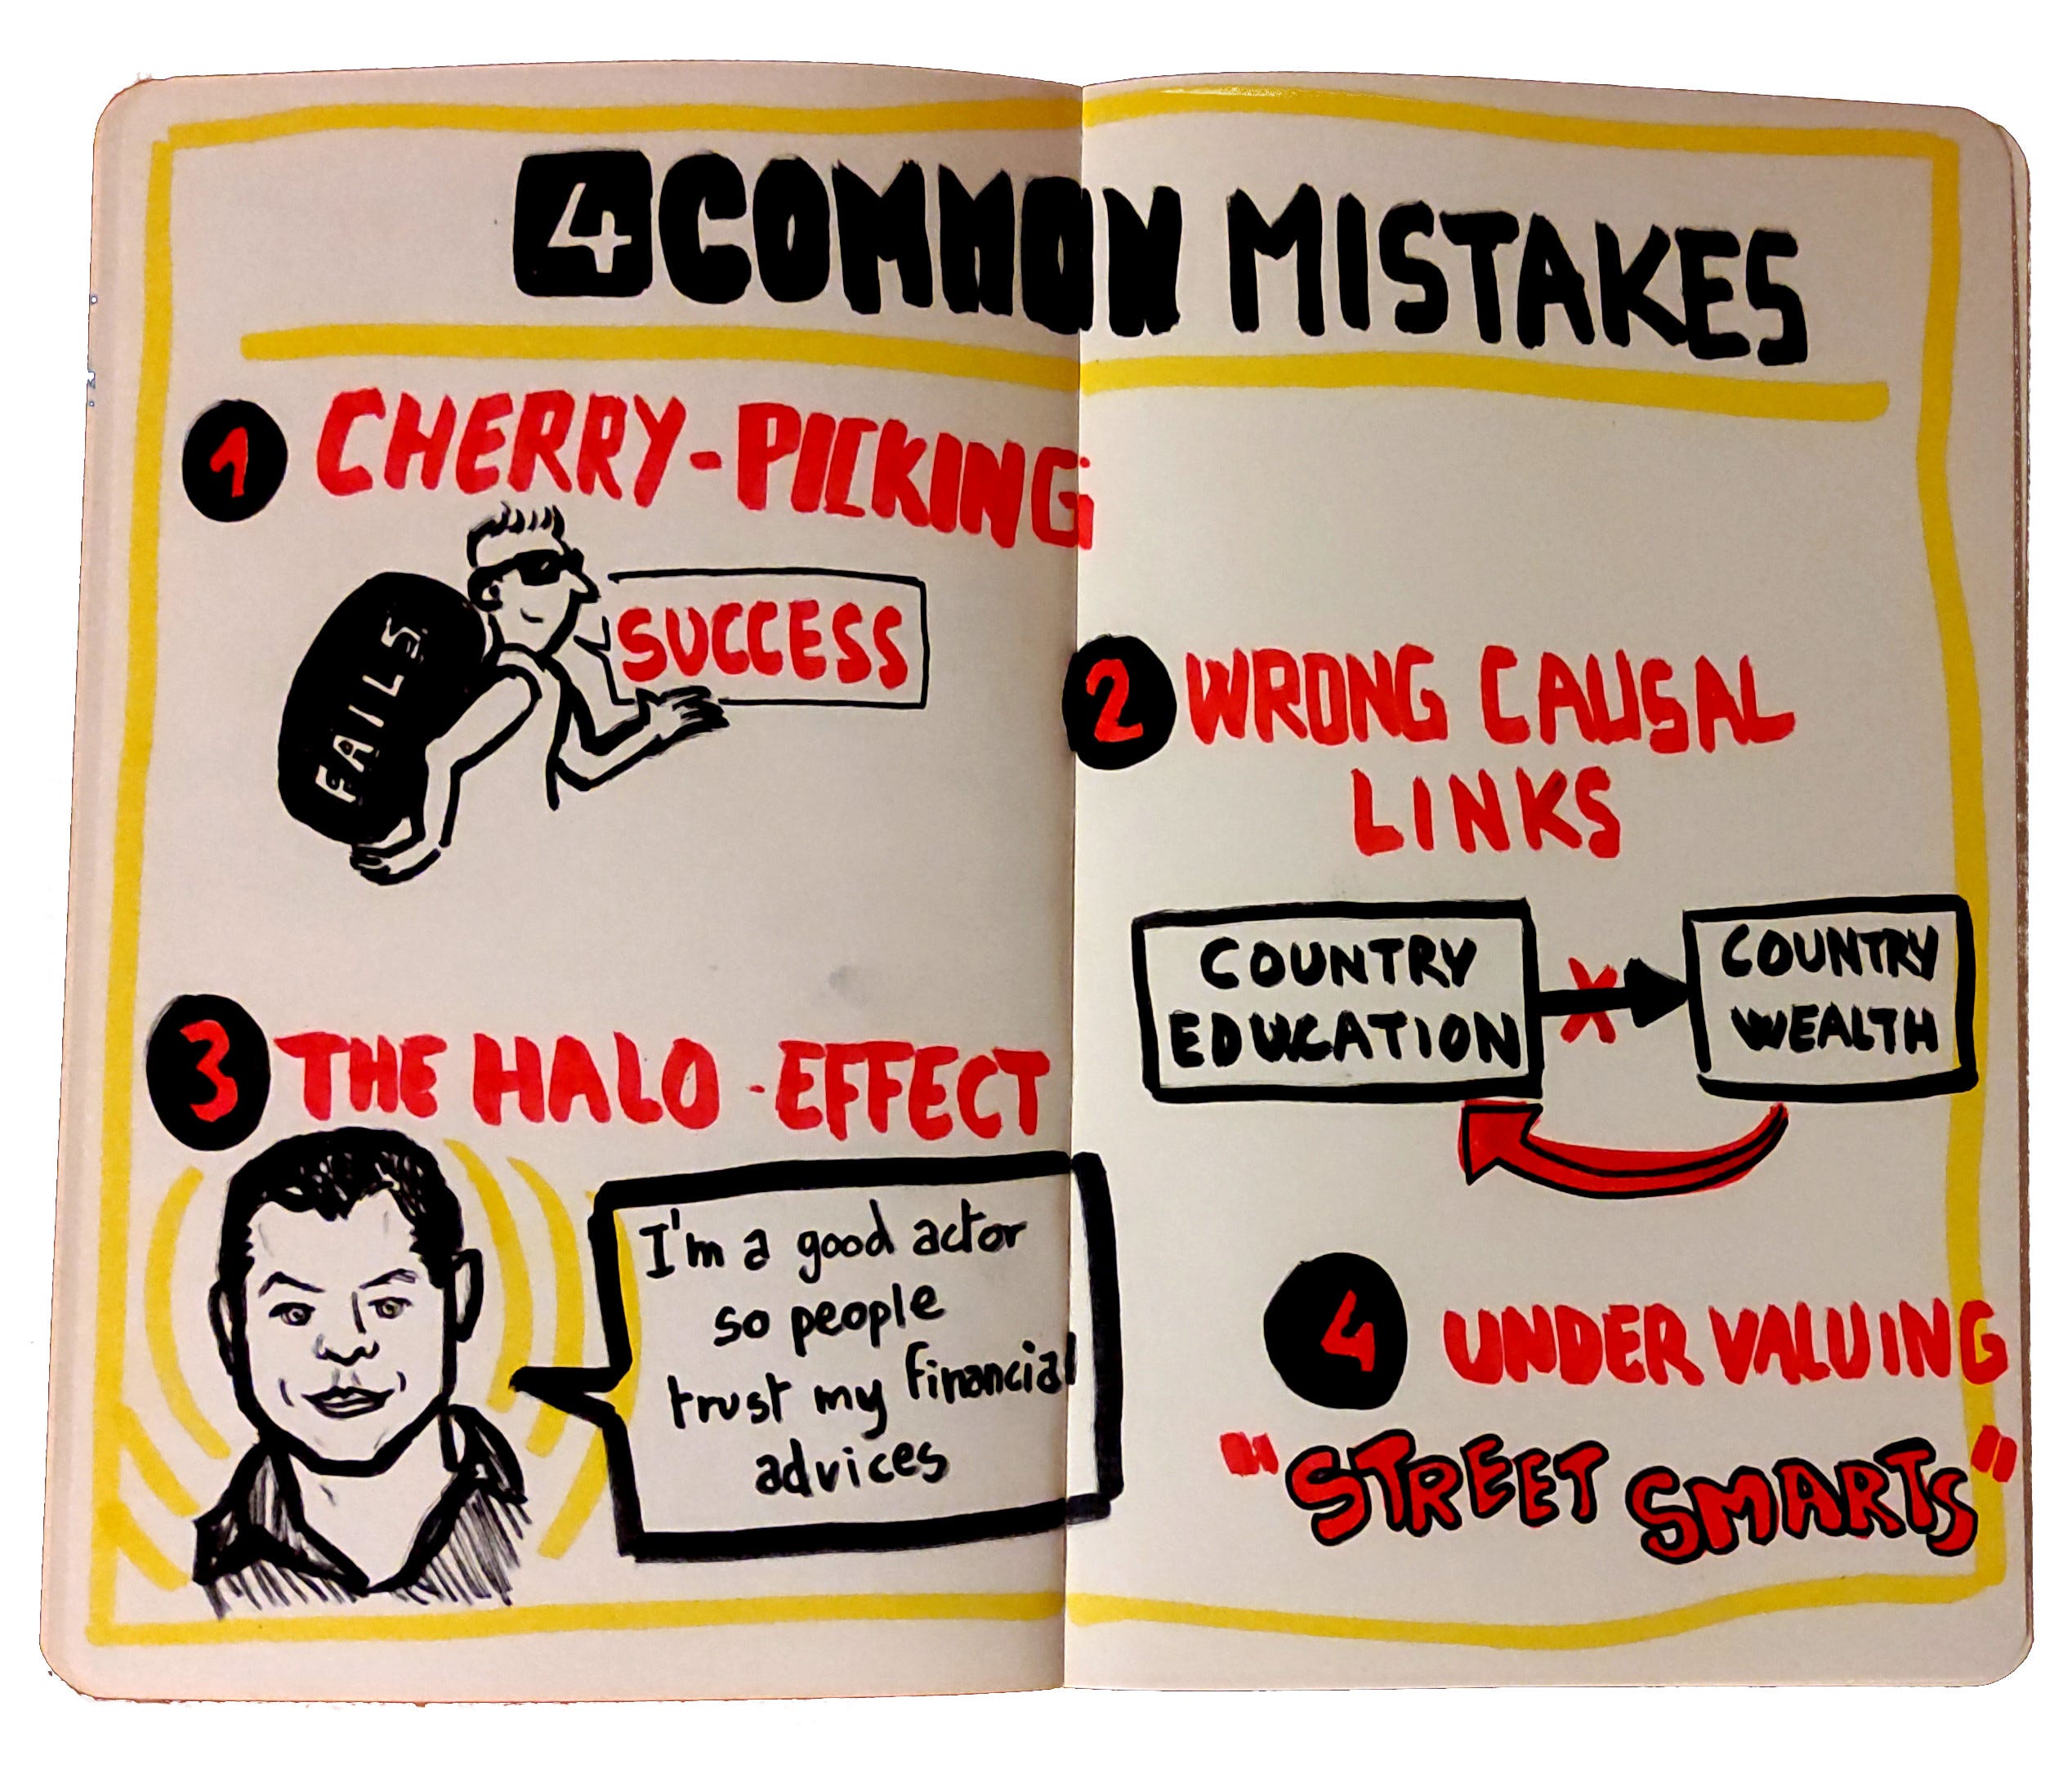 4 COMMON MISTAKES
1 CHERRY-PICKING
FAILS
SUCCESS
2 WRONG CAUSAL
LINKS
COUNTRY
EDUCATION
X
COUNTRY
WEALTH
3 THE HALO-EFFECT
I'm a good actor
so people
trust my financial
advices
4 UNDER VALUING
"STREET SMARTS"